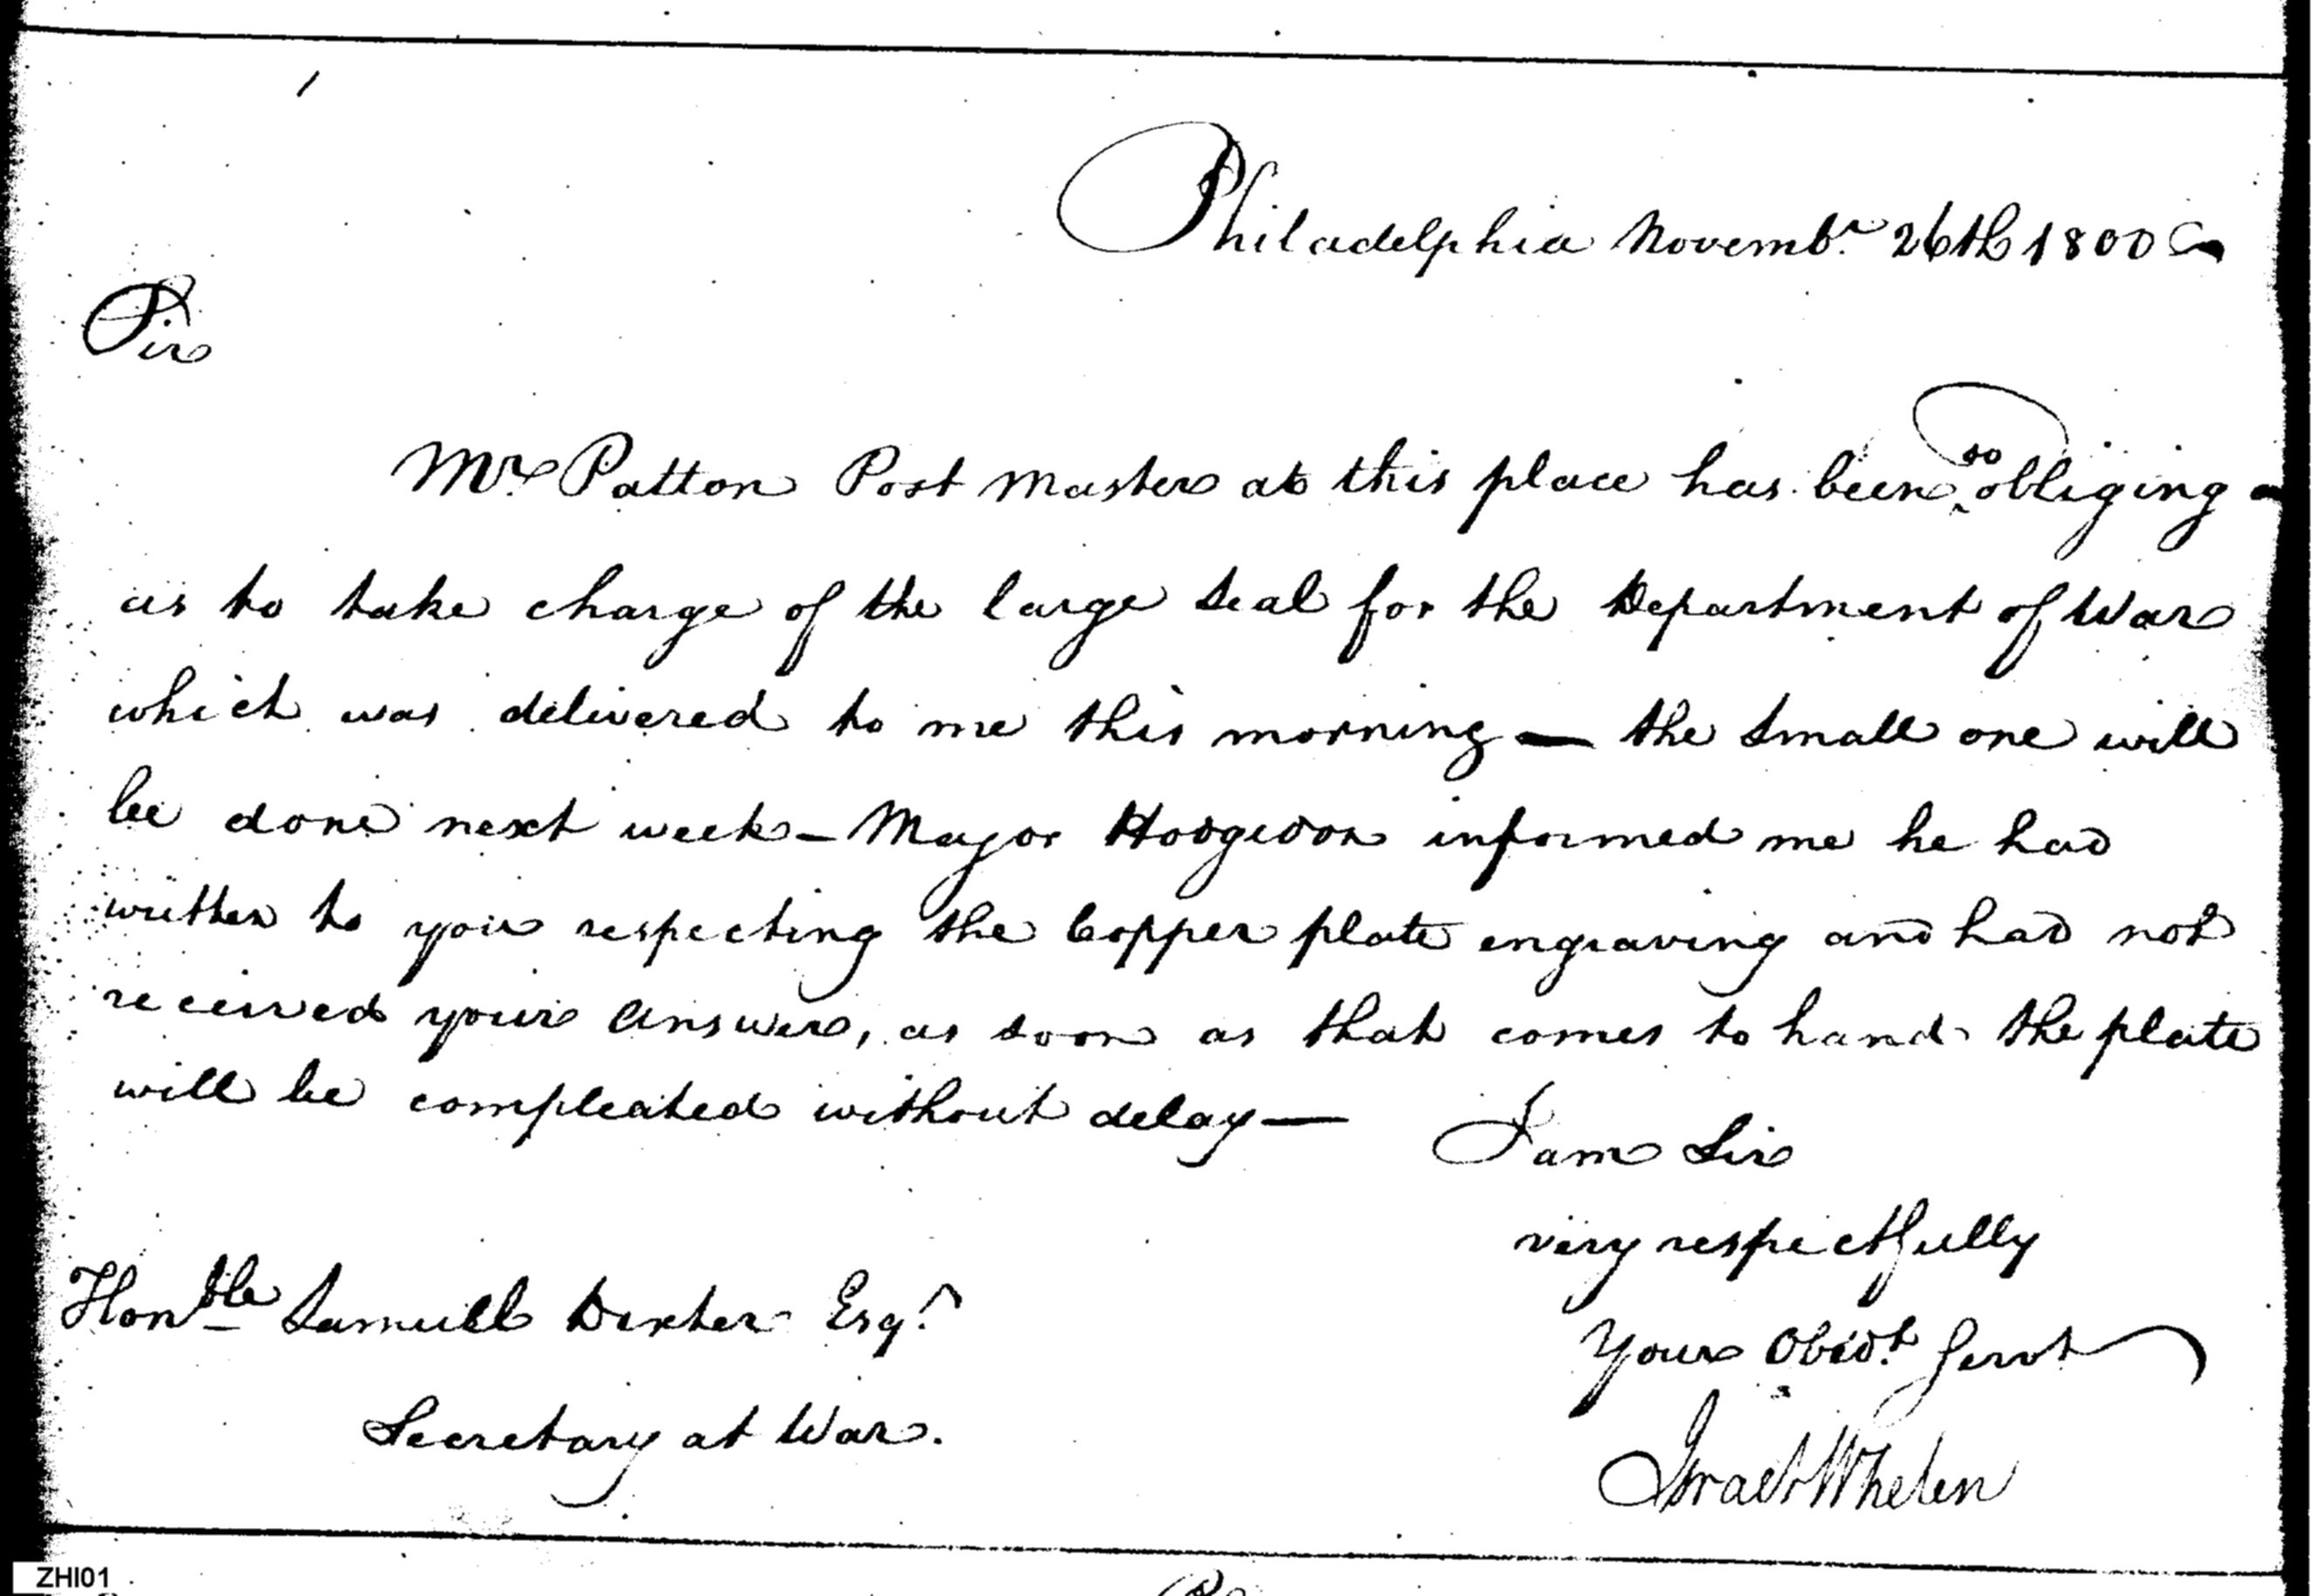 Philadelphia Novembr. 26th 1800
Sir
Mr. Patton Post Master at this place has been so obliging
as to take charge of the large Seal for the Department of War
which was delivered to me this morning — the Small one will
be done next week – Major Hodgdon informed me he had
written to you respecting the Copper plate engraving and had not
received your Answer, as soon as that comes to hand the plate
will be compleated without delay —
I am Sir
very respectfully
Your Obedt. Servt
Israel Whelen
Honble Samuell Dexter Esqr.
Secretary at War.
ZHI01